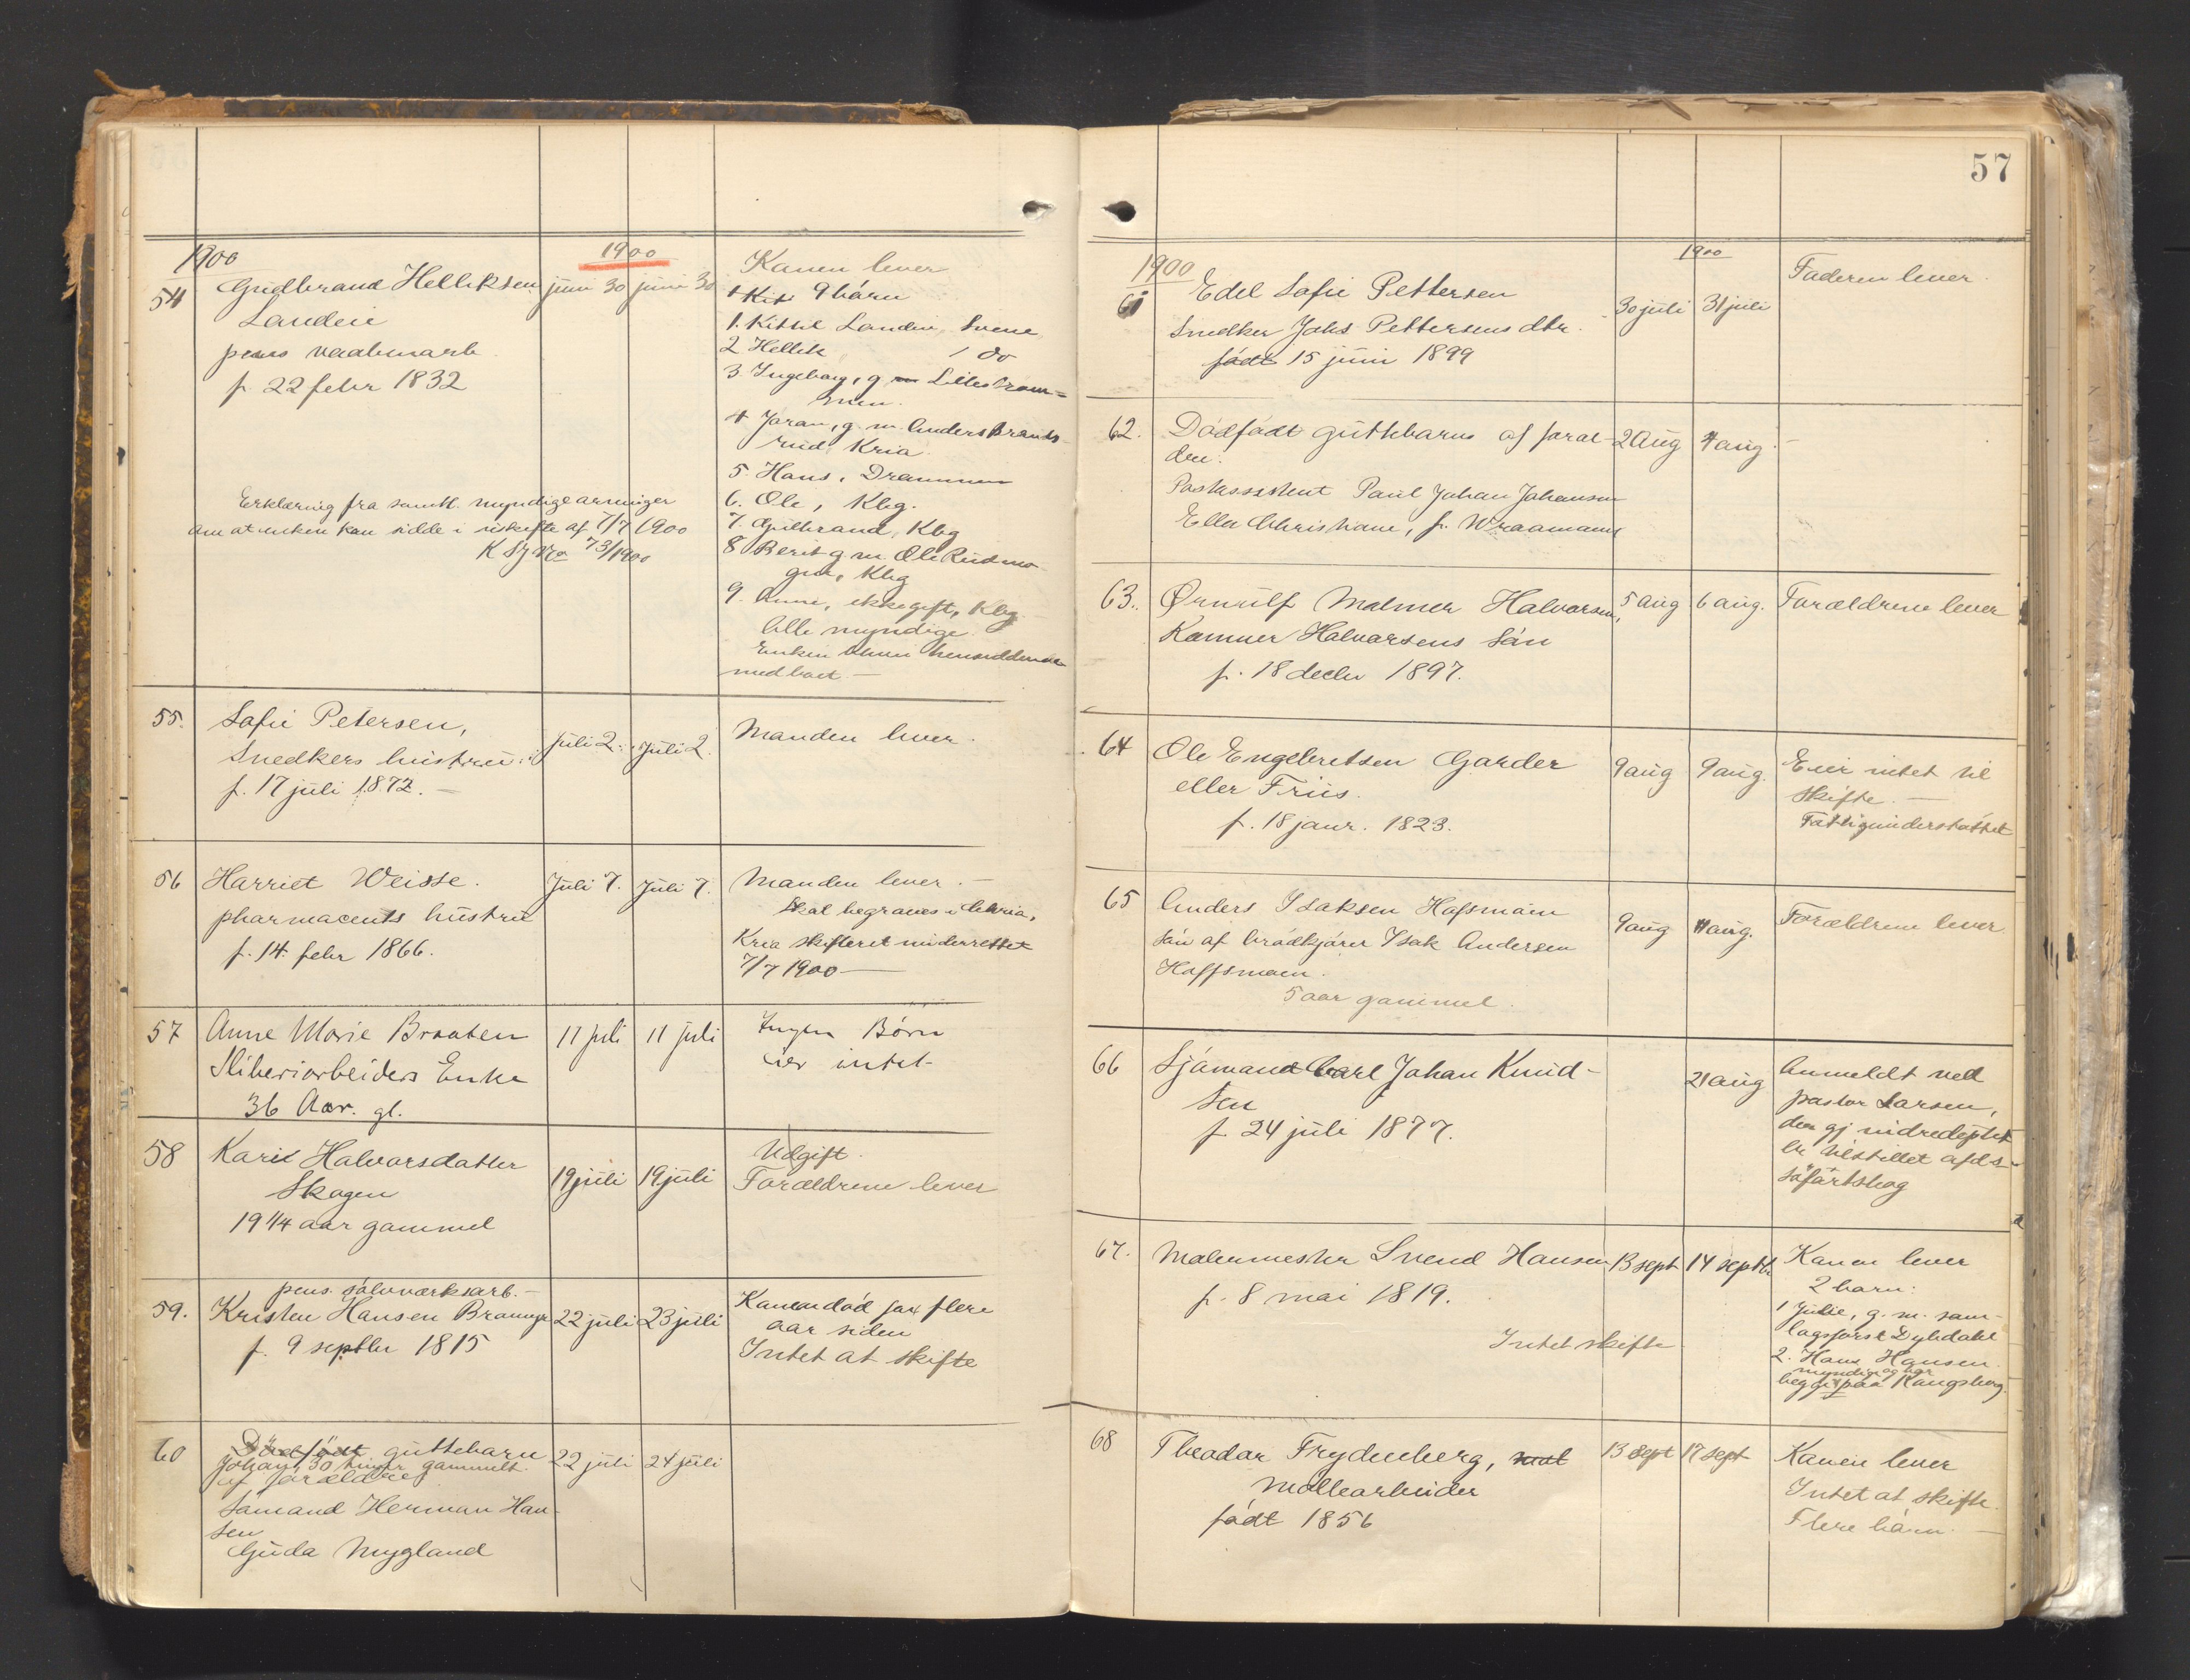 57
1900
1900
54
Gudbrand Helleksen
juni 30
juni 30
Landei
pens vaabenarb.
f. 22 febr 1832
Erklæring fra samtl. myndige arvinger
om at enken kan sidde i uskifte af 7/7 1900
73/1900
Konen lever
9 børn
1. Kittil Landei, Svene
2 Hellek / do
3 Ingeborg, g m Lillestrøm-
men.
4 Joran, g. m. Anders Brands-
rud, Kria
5. Hans, Drammen
6. Ole, Kbg.
7. Gulbrand, Kbg
8 Berit g. m. Ole Rudmo-
gen, Kbg
9. Anne, ikke gift, Kbg
Alle myndige
Enken hensiddende
med boet —
55.
Sofie Petersen,
Snedkers hustru
f. 17 juli 1872. —
Juli 2.
Juli 2.
Manden lever.
56
Harriet Weisse.
pharmaceuts hustru
f. 14. febr 1866.
Juli 7.
Juli 7.
Manden lever. —
Skal begraves i Chria,
Kria skifteret underrettet
7/7 1900 —
57
Anne Marie Braaten
Sliberiarbeiders Enke
36 Aar. gl.
11 juli
11 juli
Ingen Børn
eier intet
58
Kari Halvorsdatter
Skogen
19 1/4 aar gammel
19 juli
19 juli
Udgift.
Forældrene lever
59.
pens. sølvværksarb. —
Kristen Hansen Bramyr
f. 9 septbr 1815
22 juli
23 juli
Konen død for flere
aar siden
Intet at skifte
60
Dødfødt guttebarn
Johan, 30 timer gammelt.
af forældre
Sømand Herman Han-
sen
Guda Mygland
22 juli
24 juli
1900
1900
61
Edel Sofie Pettersen
Snedker Johs Pettersens dtr.
født 15 juni 1899
30 juli
31 juli
Faderen lever.
62.
Dødfødt guttebarn af foræl-
dre.
Postassistent Paul Johan Johansen
Ella Christiane, f. Wraamann
2 Aug
4 aug.
—
63.
Ørnulf Malmer Halvorsen,
Kæmner Halvorsens Søn
f. 18 decbr 1897.
5 aug
6 aug.
Forældrene lever
64
Ole Engebretsen Garder
eller Friis.
f. 18 janr. 1823.
9 aug
9 aug.
Eier intet til
skifte. —
Fattigunderstøttet
65
Anders Isaksen Hofsmoen
søn af brødkjører Isak Andersen
Hoffsmoen.
5 aar gammel.
9 aug
11 aug.
Forældrene lever
66
Sjømand Carl Johan Knud-
sen
f. 24 juli 1877.
21 aug
Anmeldt ved
pastor Larsen,
den gj
er tilstillet afds
søfartsbog
67.
Malermester Svend Hansen
f. 8 mai 1819.
Intet skifte
13 sept
14 septbr
Konen lever
2 barn:
1 Julie, g. m. sam-
lagsforst Dybdahl
2. Hans Hansen.
myndig og bor
begge paa Kongsberg
68
Theodor Frydenberg, mol
Møllearbeider
født 1856
13 sept
17 sept
Konen lever
Intet at skifte.
Flere børn. —